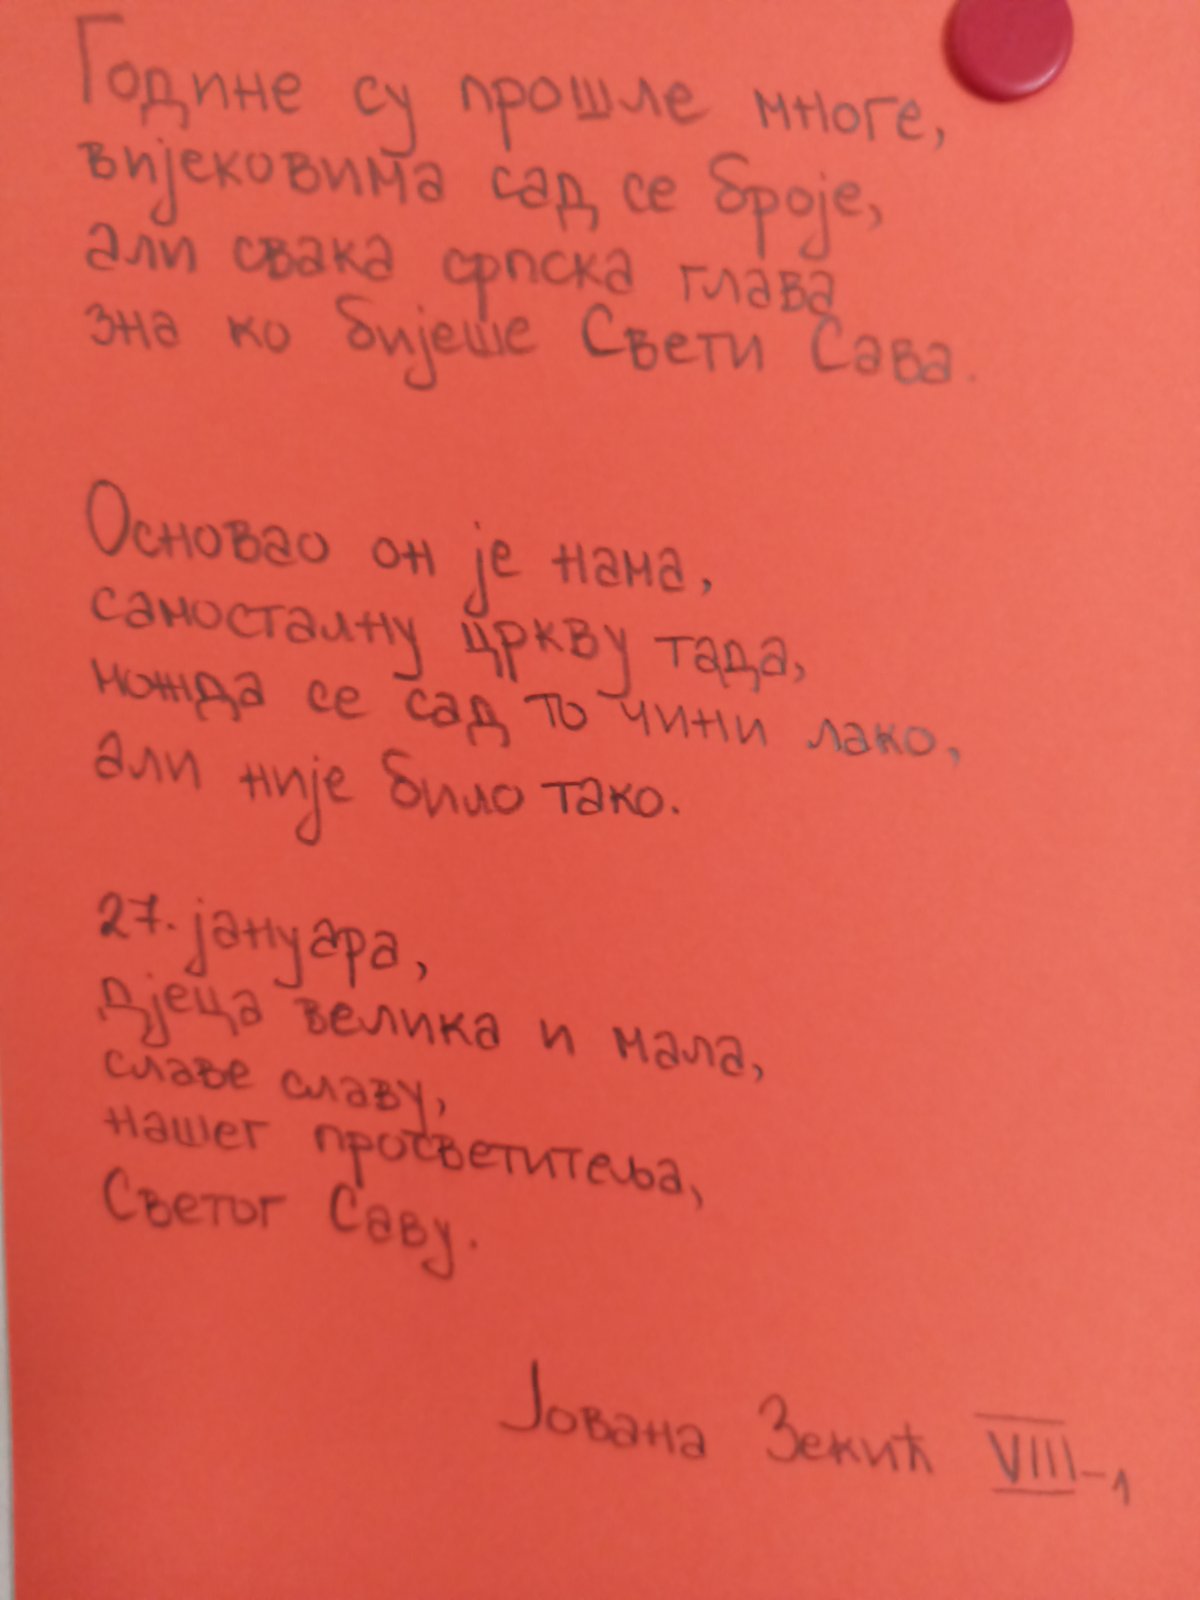 Године су прошле многе,
вијековима сад се броје,
али свака српска глава
зна ко бијеше Свети Сава.
Основао он је нама,
самосталну цркву тада,
можда се сад то чини лако,
али није било тако.
27. јануара,
дјеца велика и мала,
славе славу,
нашег просветитеља,
Светог Саву.
Јована Зекић VIII-1